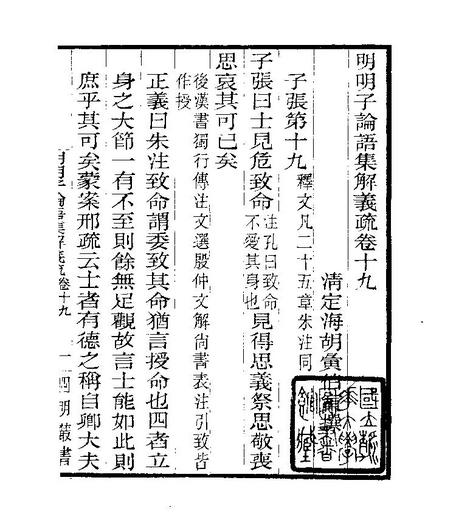 明明子論語集解義疏卷十九
清定海胡夤
子張第十九釋文凡二十五章朱注同
子張曰士見危致命注孔曰致命不愛其身也見得思義祭思敬喪
思哀其可已矣
後漢書獨行傳注文選殷仲文解尚書表注引致皆作授
正義曰朱注致命謂委致其命猶言授命也四者立
身之大節一有不至則餘無足觀故言士能如此則
庶乎其可矣蒙案邢疏云士者有德之稱自卿大夫
明明子論語集解義疏卷十九 一 四明叢書